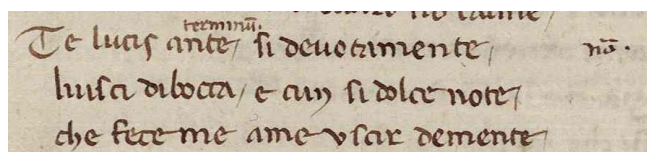 terminū.
Te lucis ante, si devotamente, nō.
liusci dibocca, e cun si dolce note,
che fece me ame uscir demente